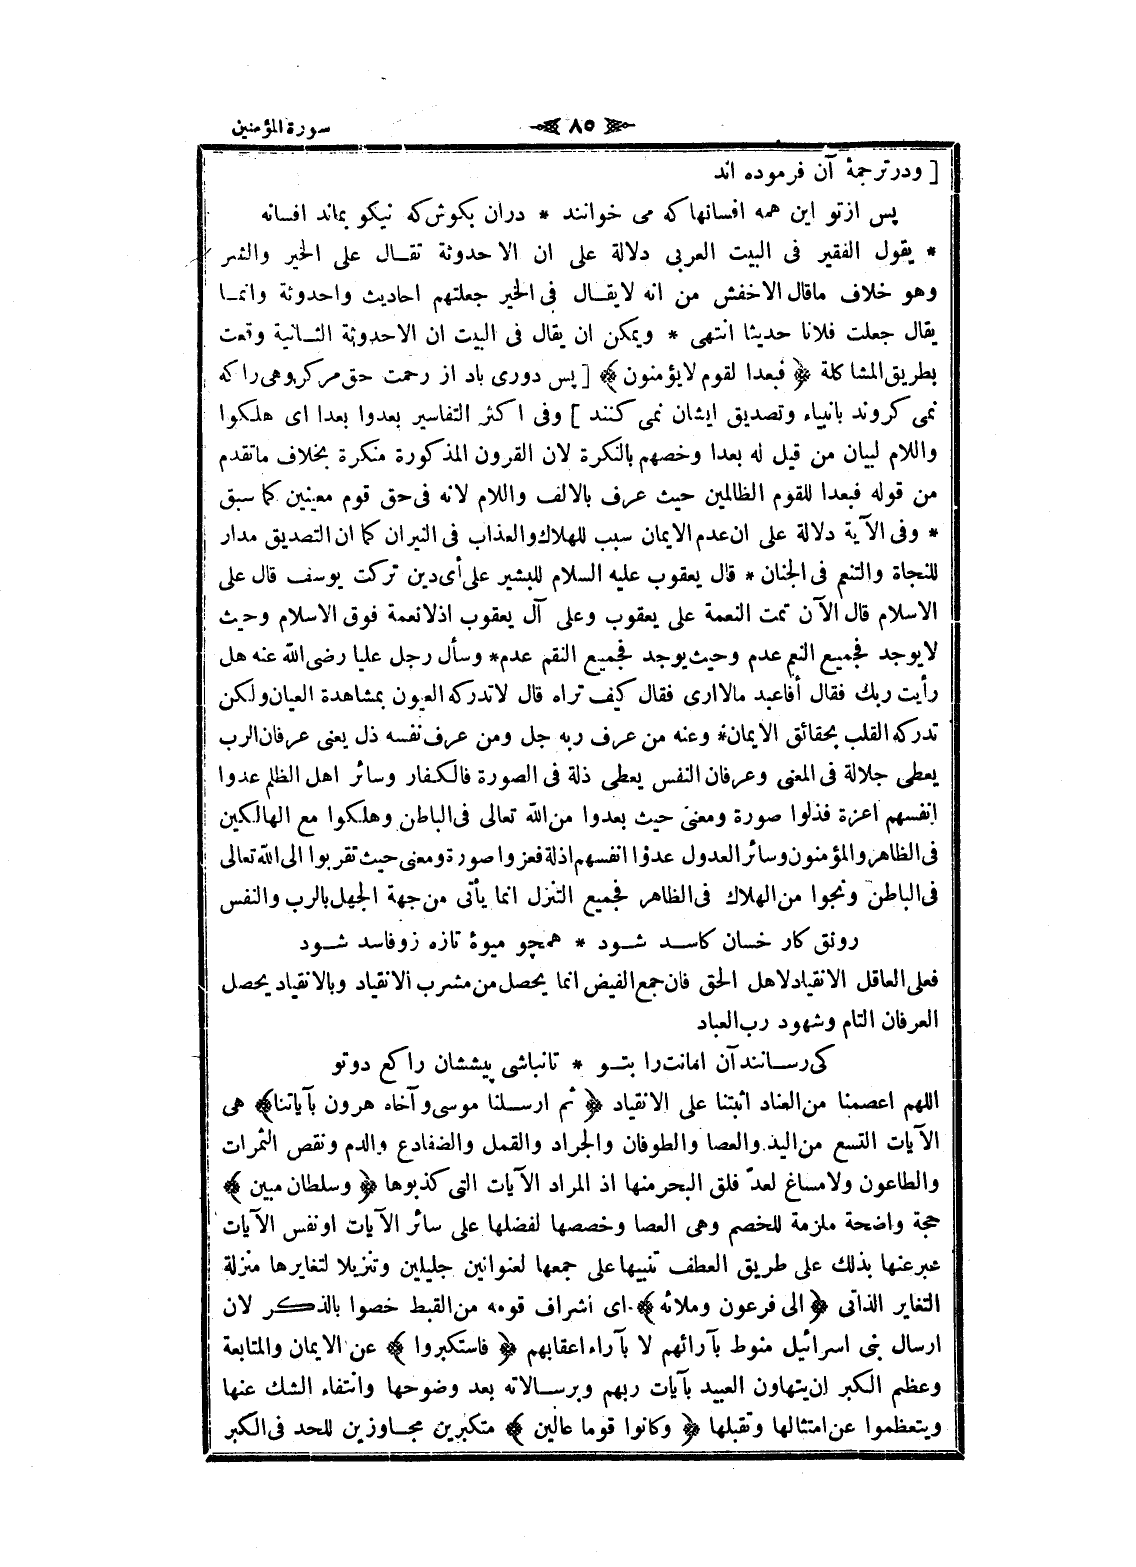 سورة المؤمنين
٨٥
[ ودر ترجمهٔ آن فرموده اند
پس ازتو این همه افسانها که می خوانند * دران بکوش که نیکو بماند افسانه
* يقول الفقير فى البيت العربى دلالة على ان الاحدوثة تقال على الخير والشر
وهو خلاف ماقال الاخفش من انه لايقال فى الخير جعلتهم احاديث واحدوثة وانما
يقال جعلت فلانا حديثا انتهى * ويمكن ان يقال فى البيت ان الاحدوثة الثانية وقعت
بطريق المشاكلة ﴿ فبعدا لقوم لايؤمنون ﴾ [ پس دوری باد از رحمت حق مرکروهی را که
نمی کروند بانبیاء وتصدیق ایشان نمی کنند ] وفى اكثر التفاسير بعدوا بعدا اى هلكوا
واللام لبيان من قيل له بعدا وخصهم بالنكرة لان القرون المذكورة منكرة بخلاف ماتقدم
من قوله فبعدا للقوم الظالمين حيث عرف بالالف واللام لانه فى حق قوم معينين كما سبق
* وفى الآية دلالة على ان عدم الايمان سبب للهلاك والعذاب فى النيران كما ان التصديق مدار
للنجاة والتنعم فى الجنان * قال يعقوب عليه السلام للبشير على أى دين تركت يوسف قال على
الاسلام قال الآن تمت النعمة على يعقوب وعلى آل يعقوب اذلانعمة فوق الاسلام وحيث
لايوجد فجميع النعم عدم وحيث يوجد فجميع النقم عدم * وسأل رجل عليا رضى الله عنه هل
رأيت ربك فقال أفاعبد مالاارى فقال كيف تراه قال لاتدركه العيون بمشاهدة العيان ولكن
تدركه القلب بحقائق الايمان * وعنه من عرف ربه جل ومن عرف نفسه ذل يعنى عرفان الرب
يعطى جلالة فى المعنى وعرفان النفس يعطى ذلة فى الصورة فالكفار وسائر اهل الظلم عدوا
انفسهم اعزة فذلوا صورة ومعنى حيث بعدوا من الله تعالى فى الباطن وهلكوا مع الهالكين
فى الظاهر والمؤمنون وسائر العدول عدوا انفسهم اذلة فعزوا صورة ومعنى حيث تقربوا الى الله تعالى
فى الباطن ونجوا من الهلاك فى الظاهر فجميع التنزل انما يأتى من جهة الجهل بالرب والنفس
رونق کار خسان کاسد شود * همچو میوهٔ تازه زو فاسد شود
فعلى العاقل الانقياد لاهل الحق فان جمع الفيض انما يحصل من مشرب الانقياد وبالانقياد يحصل
العرفان التام وشهود رب العباد
کی رسانند آن امانت را بتو * تانباشی پیششان راکع دوتو
اللهم اعصمنا من العناد اثبتنا على الانقياد ﴿ ثم ارسلنا موسى وآخاه هرون بآياتنا ﴾ هى
الآيات التسع من اليد والعصا والطوفان والجراد والقمل والضفادع والدم ونقص الثمرات
والطاعون ولامساغ لعد فلق البحر منها اذ المراد الآيات التى كذبوها ﴿ وسلطان مبين ﴾
حجة واضحة ملزمة للخصم وهى العصا وخصصها لفضلها على سائر الآيات اونفس الآيات
عبر عنها بذلك على طريق العطف تنبيها على جمعها لعنوانين جليلين وتنزيلا لتغايرها منزلة
التغاير الذاتى ﴿ الى فرعون وملائه ﴾ اى اشراف قومه من القبط خصوا بالذكر لان
ارسال بنى اسرائيل منوط بآرائهم لا بآراء اعقابهم ﴿ فاستكبروا ﴾ عن الايمان والمتابعة
وعظم الكبر ان يتهاون العبيد بآيات ربهم وبرسالاته بعد وضوحها وانتفاء الشك عنها
ويتعظموا عن امتثالها وتقبلها ﴿ وكانوا قوما عالين ﴾ متكبرين مجاوزين للحد فى الكبر